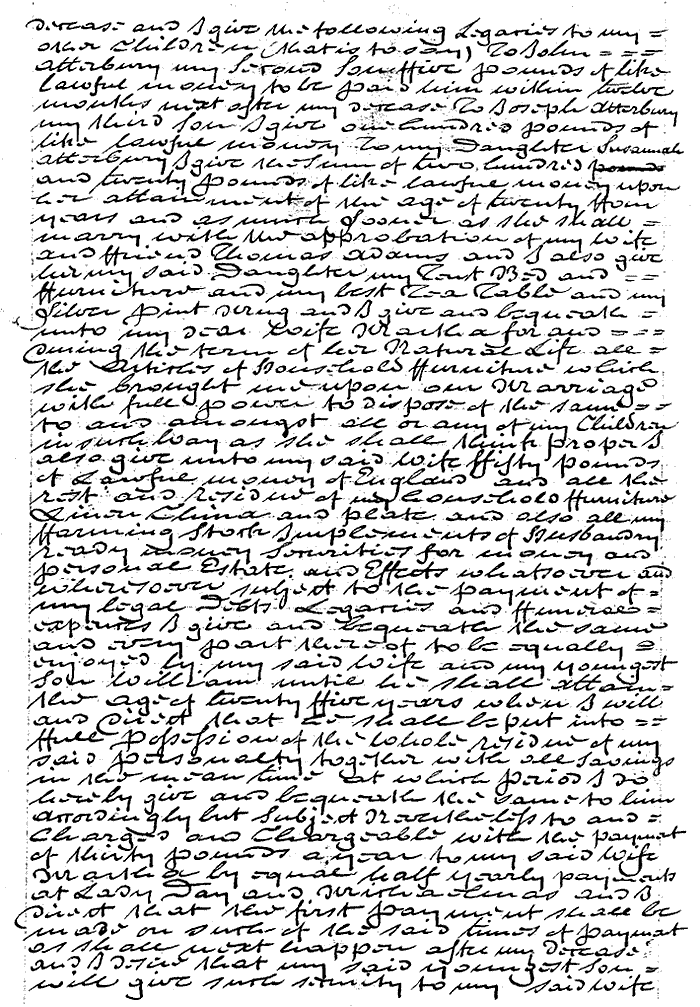 decease and I give the following Legacies to my =
other Children (that is to say) To John = = =
Atterbury my Second Son ffive pounds of like
lawful money to be paid him within twelve
months next after my decease To Joseph Atterbury
my third Son I give one hundred pounds of
like lawful money To my Daughter Susannah
Atterbury I give the Sum of two hundred pounds
and twenty pounds of like lawful money upon
her attainment of the age of twenty ffour
years and as much Sooner as she shall =
marry with the approbation of my wife
and ffriend Thomas Adams and I also give
her my said Daughter my Best Bed and = =
ffurniture and my best Tea Table and my
Silver pint Mug and I give and bequeath =
unto my dear Wife Martha for and = = =
During the term of her Natural Life all =
the Articles of Household ffurniture which
she brought me upon our Marriage
with full power to dispose of the same = =
to and amongst all or any of my Children
in such way as she shall think proper I
also give unto my said wife ffifty pounds
of Lawful money of England and all the
rest and residue of my household ffurniture
Linen China and plate and also all my
ffarming Stock Implements of Husbandry
ready money Securities for money and
personal Estate and Effects whatsoever and
wheresoever subject to the payment of =
my legal Debts Legacies and ffuneral =
expences I give and bequeath the same
and every part thereof to be equally =
enjoyed by my said wife and my youngest
Son William until he shall attain =
the age of twenty ffive years when I will
and direct that he shall be put into = =
ffull possession of the whole residue of my
said personalty together with all Savings
in the mean time at which period I do
hereby give and bequeath the same to him
accordingly but Subject Nevertheless to and =
Charged and Chargeable with the payment
of thirty pounds a year to my said wife
Martha by equal half yearly payments
at Lady Day and Michaelmas and I
direct that the first payment shall be
made on such of the said times of payment
as shall next happen after my Decease
and I desire that my said youngest Son =
will give such security to my said wife